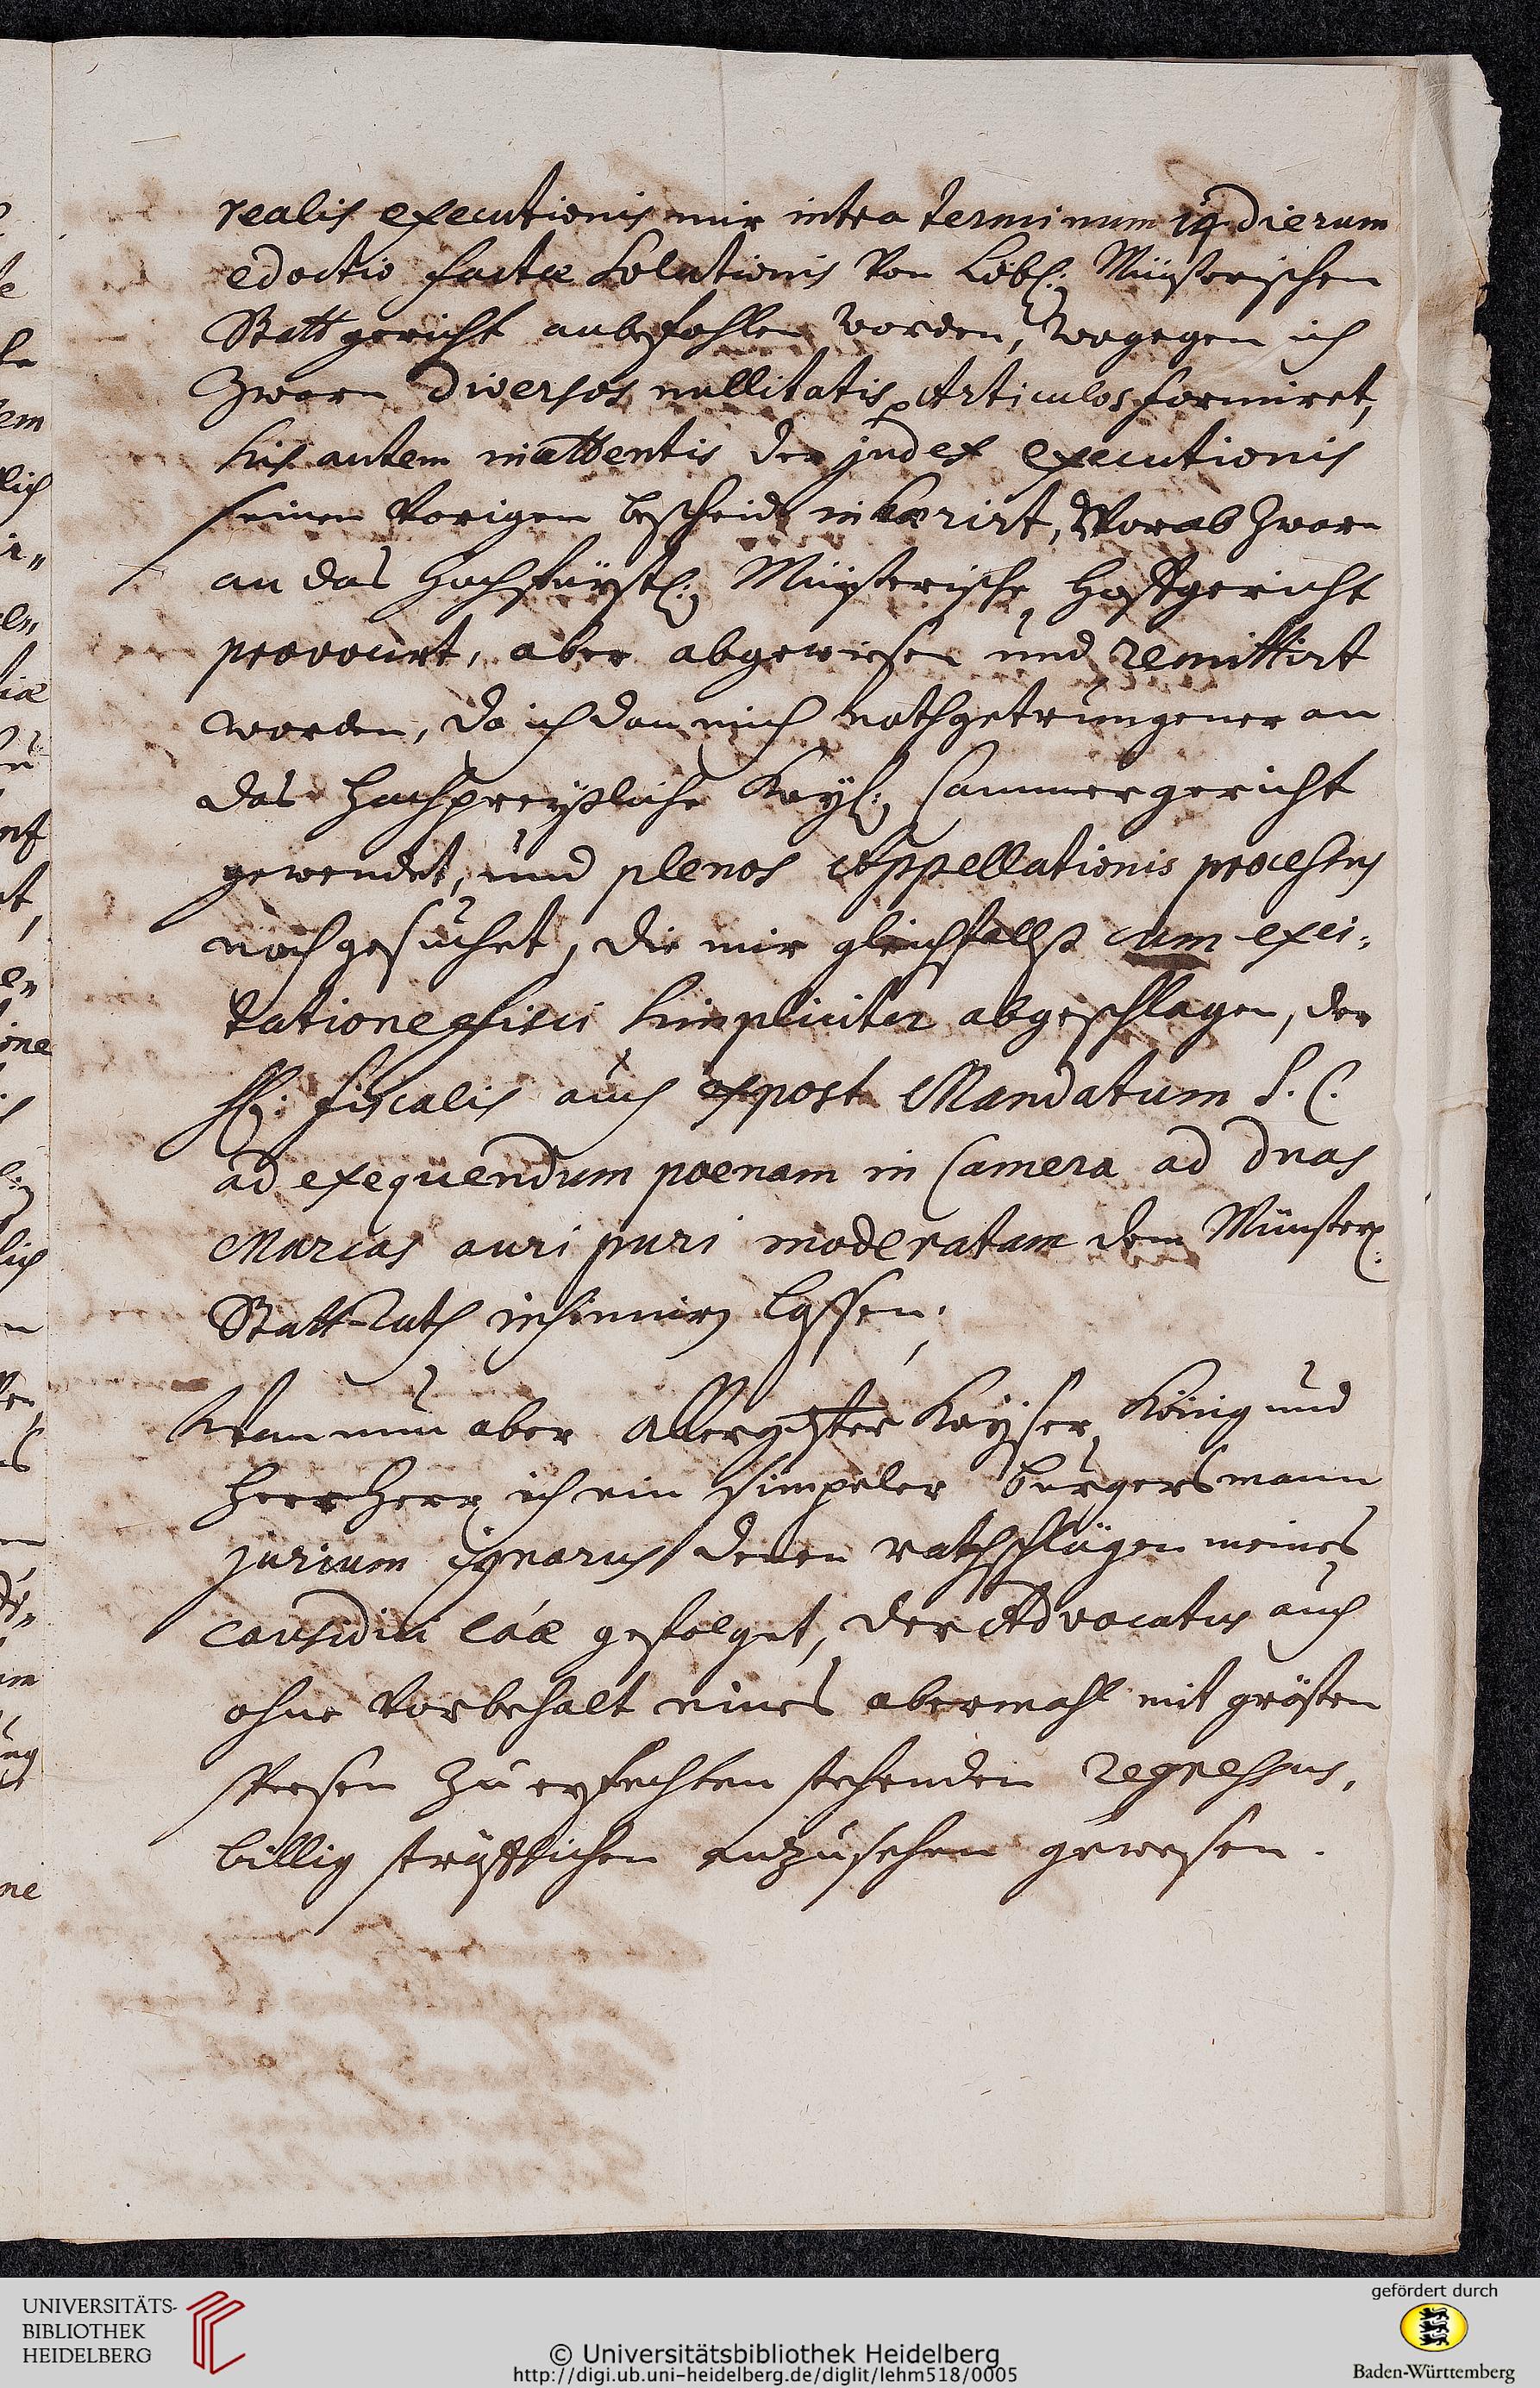 realis executionis mir intra terminum 14 dierum
edoctio factae Solutionis von Löbl: Münsterischen
Stattgericht anbefohlen worden, wogegen ich
zwarn diversos nullitatis Articulos formiret,
his autem inattentis der judex executionis
seinen vorigen bescheidt inhaerirt, Worab zwarn
an das Hochfürstl: Münsterische Hoffgericht
provocirt, aber abgewiesen und remittirt
worden, da ich dan mich nothgetrungener an
das Hochpreyßliche Kayl: Cammergericht
gewendet, und plenos Appellationis processus
nachgesuchet, die mir gleichfallß cum exci-
tatione fisci simpliciter abgeschlagen, der
H: fiscalis auch expost Mandatum S. C.
ad exequendum poenam in Camera ad duas
Marcas auri puri moderatam dem Münster:
Statt-Rath insinuirn lassen.
Wan nun aber Allergdster Kayser, König und
Herr Herr ich ein simpeler burgersmann
jurium ignarus denen rathschlägen meines
causidici eae gefolget, der Advocatus auch
ohne Vorbehalt eines abermahl mit grösten
speesen zu erfechten stehenden regressus,
billig sträfflichen anzusehen gewesen.
UNIVERSITÄTS-
BIBLIOTHEK
HEIDELBERG
© Universitätsbibliothek Heidelberg
http://digi.ub.uni-heidelberg.de/diglit/lehm518/0005
gefördert durch
Baden-Württemberg